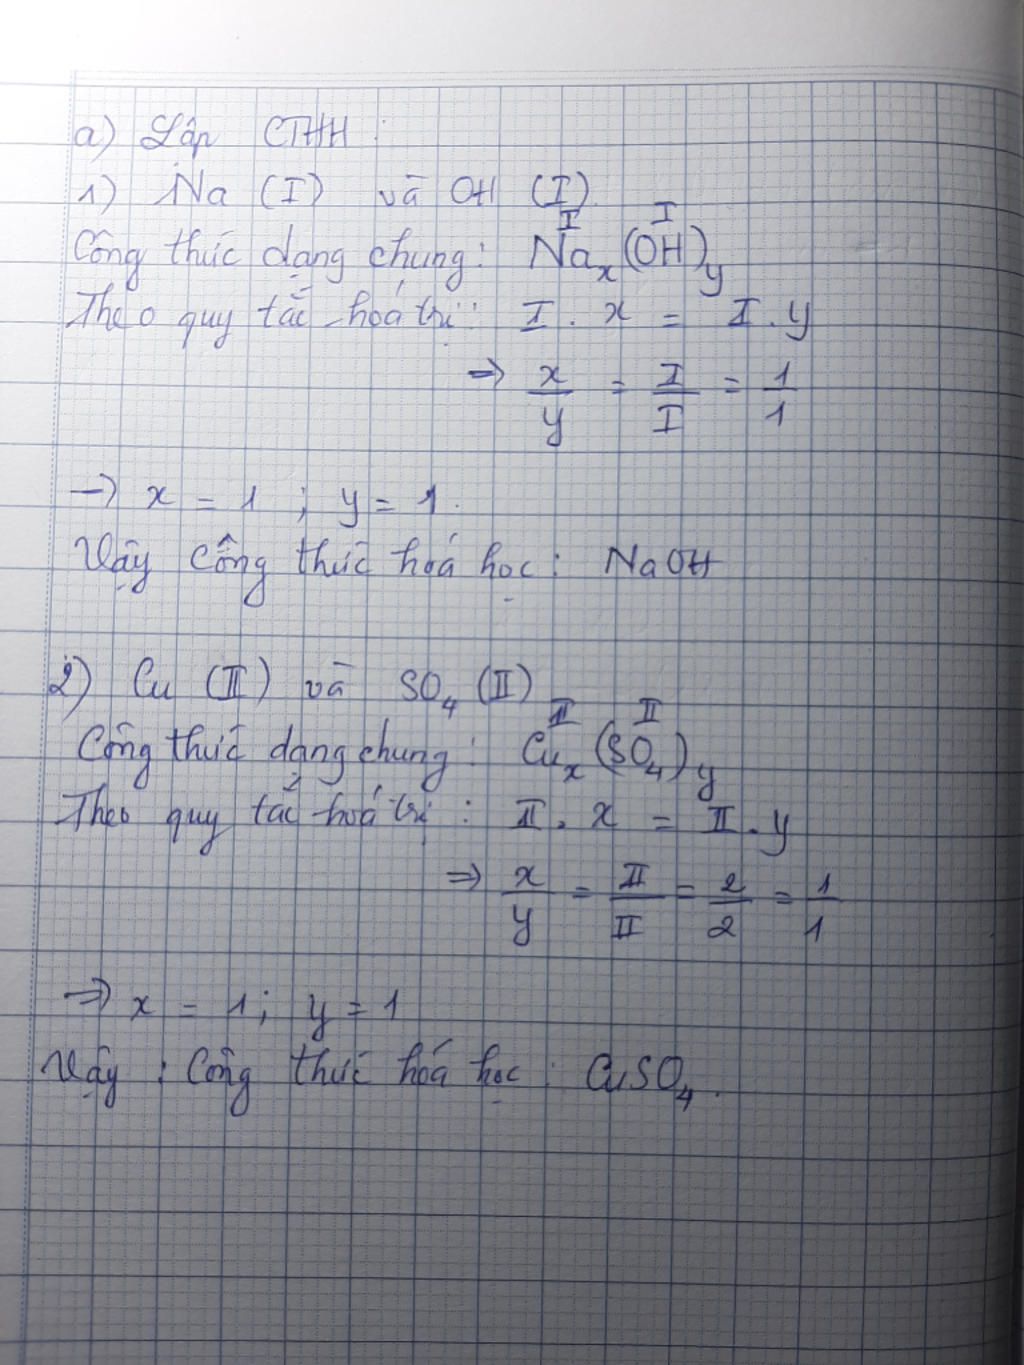 a) Lập CTHH :
1) Na (I) và OH (I)
Công thức dạng chung : Naₓ(OH)y
I I
Theo quy tắc hoá trị : I . x = I . y
→ x/y = I/I = 1/1
→ x = 1 ; y = 1.
Vậy công thức hoá học : NaOH
2) Cu (II) và SO₄ (II)
Công thức dạng chung : Cuₓ(SO₄)y
II II
Theo quy tắc hoá trị : II . x = II . y
⇒ x/y = II/II = 2/2 = 1/1
⇒ x = 1 ; y = 1
Vậy : Công thức hoá học : CuSO₄.